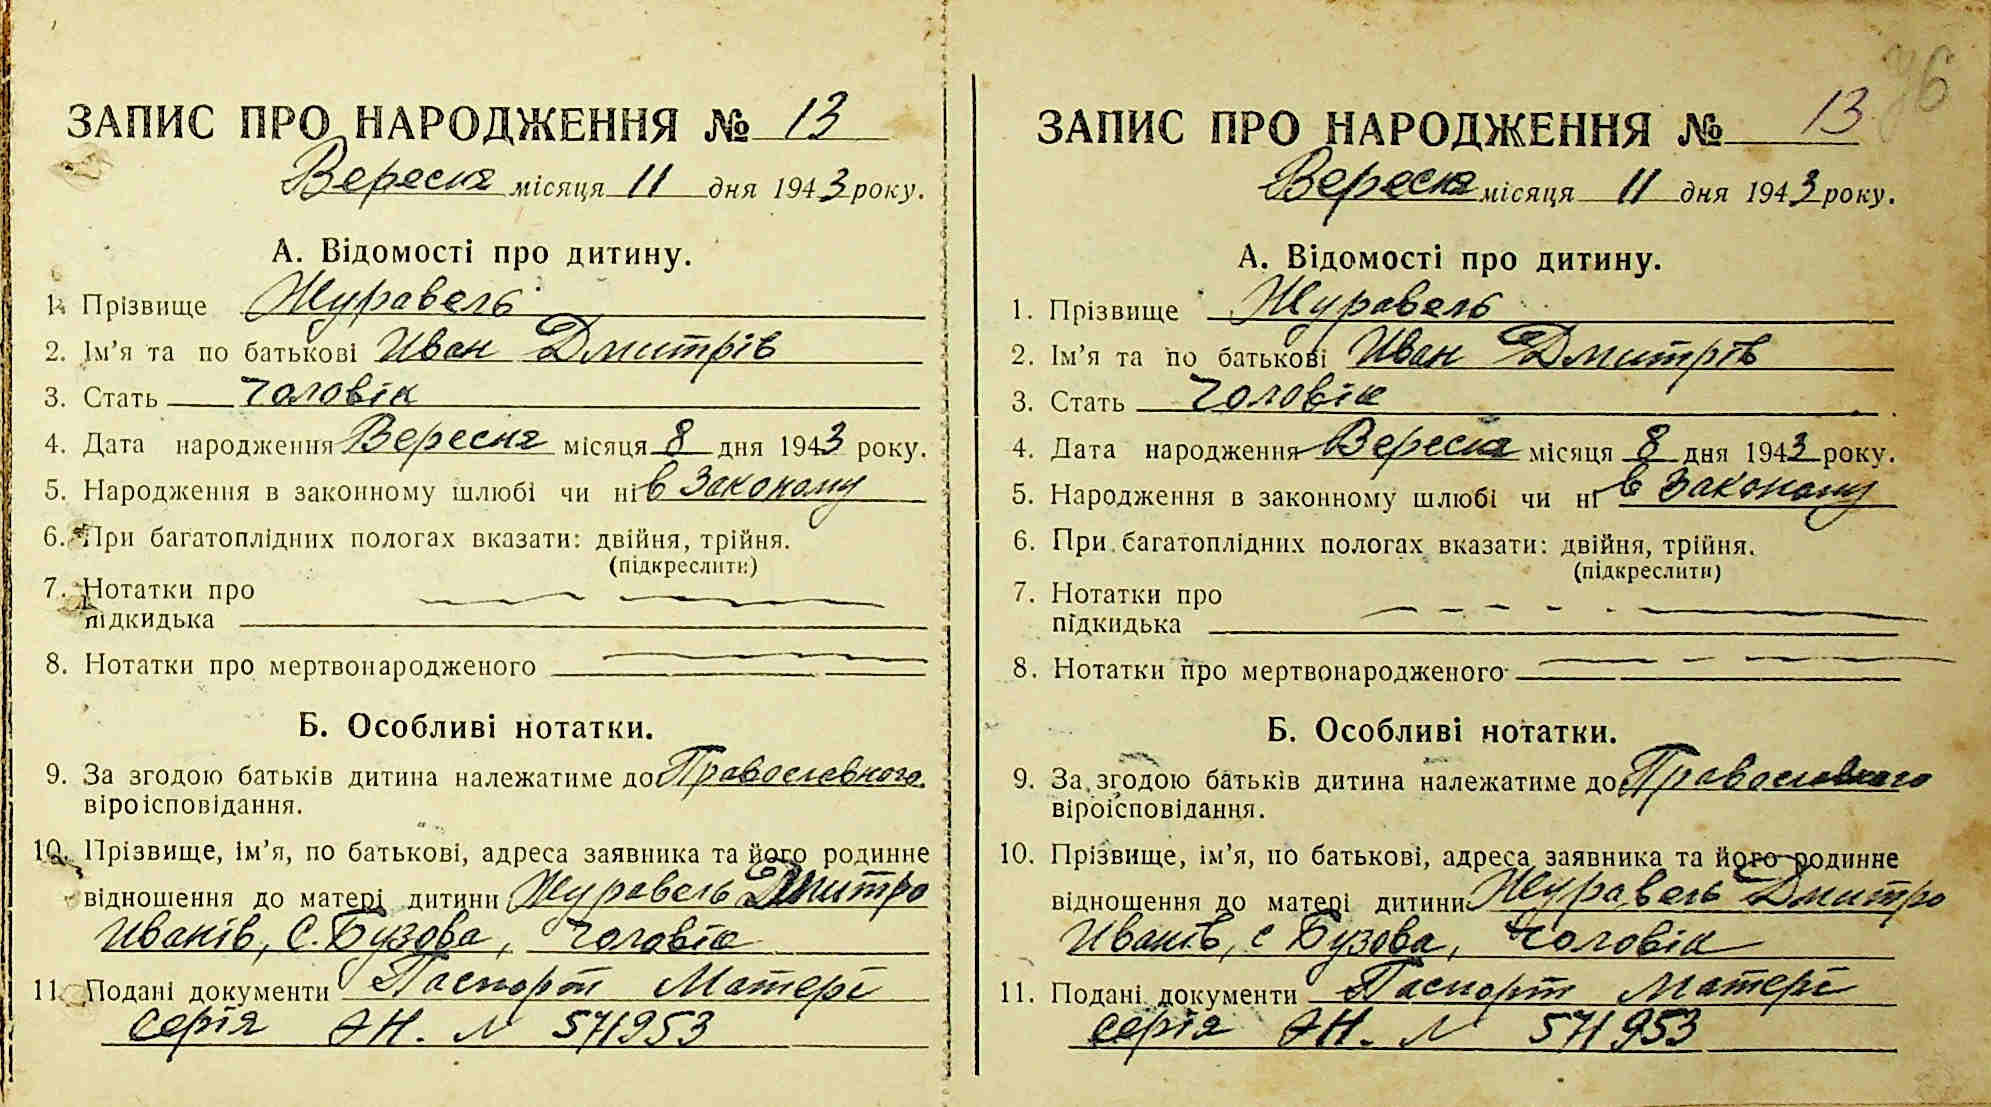 ЗАПИС ПРО НАРОДЖЕННЯ № 13
Вересня місяця 11 дня 1943 року.
А. Відомості про дитину.
1. Прізвище Журавель
2. Ім'я та по батькові Иван Дмитрів
3. Стать Чоловік
4. Дата народження Вересня місяця 8 дня 1943 року.
5. Народження в законному шлюбі чи ні в Законому
6. При багатоплідних пологах вказати: двійня, трійня.
(підкреслити)
7. Нотатки про
підкидька
8. Нотатки про мертвонародженого
Б. Особливі нотатки.
9. За згодою батьків дитина належатиме до Православного
віроісповідання.
10. Прізвище, ім'я, по батькові, адреса заявника та його родинне
відношення до матері дитини Журавель Дмитро
Иванів, С. Бузова, Чоловік
11. Подані документи Паспорт Матері
Серія АН. N 571953
76
ЗАПИС ПРО НАРОДЖЕННЯ № 13
Вересня місяця 11 дня 1943 року.
А. Відомості про дитину.
1. Прізвище Журавель
2. Ім'я та по батькові Иван Дмитрів
3. Стать Чоловік
4. Дата народження Вересня місяця 8 дня 1943 року.
5. Народження в законному шлюбі чи ні в Законому
6. При багатоплідних пологах вказати: двійня, трійня.
(підкреслити)
7. Нотатки про
підкидька
8. Нотатки про мертвонародженого
Б. Особливі нотатки.
9. За згодою батьків дитина належатиме до Православного
віроісповідання.
10. Прізвище, ім'я, по батькові, адреса заявника та його родинне
відношення до матері дитини Журавель Дмитро
Иванів, с Бузова, Чоловік
11. Подані документи Паспорт Матері
Серія АН. N 571953